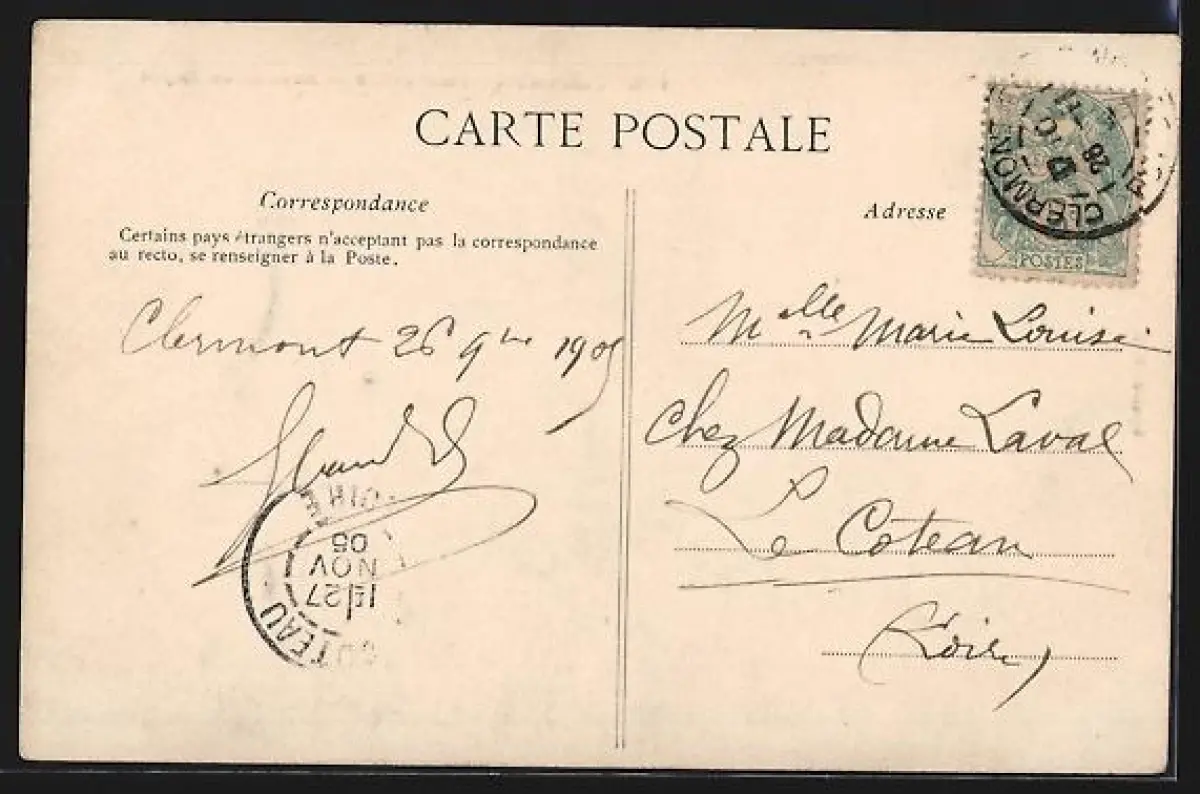 CARTE POSTALE
Correspondance
Certains pays étrangers n'acceptant pas la correspondance
au recto, se renseigner à la Poste.
Clermont 26 9bre 1905
Adresse
POSTES
CLERMON
Melle Marie Louise
Chez Madame Laval
Le Coteau
(Loire)
OTEAU
27
NOV
05